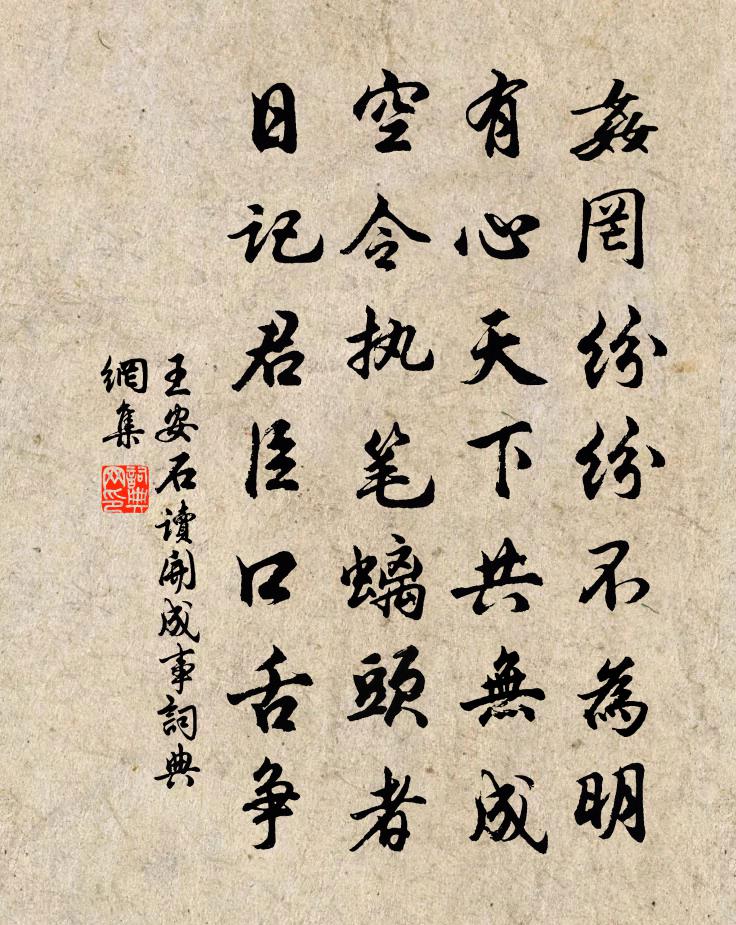 姦罔纷纷不為明
有心天下共無成
空令执笔螭頭者
日记君臣口舌争
王安石讀開成事詞典
網集
詞典网印